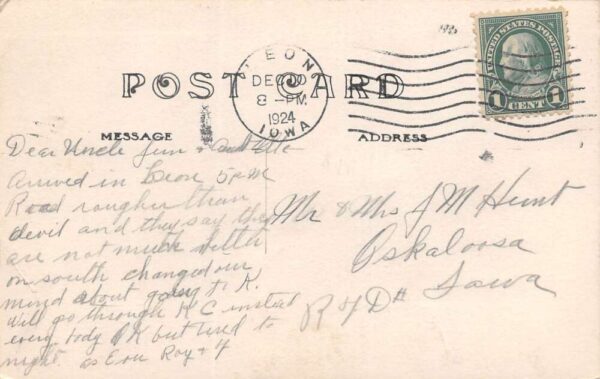 UNITED STATES POSTAGE
1 CENT 1
LEON
DEC 20
8 - PM
1924
IOWA
POST CARD
MESSAGE
ADDRESS
Dear Uncle Jim &
arrived in Leon 5 PM
Road rougher than
devil and they say they
are not much better
on south changed our
mind about going to K.
Will go through K C instead
every body OK but tired to
night. as Ever Roy + 4
Mr & Mrs J M Hunt
Oskaloosa
Iowa
R F D #